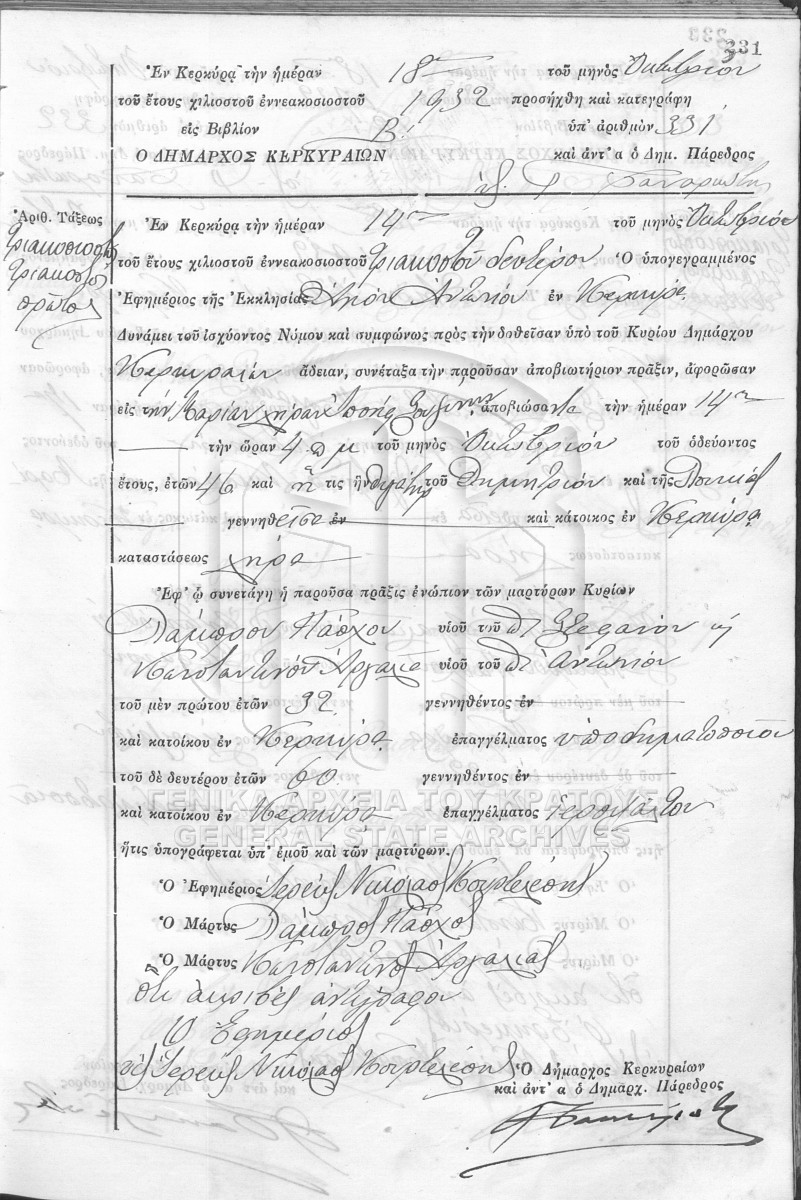 231
Ἐν Κερκύρᾳ τὴν ἡμέραν 18ην τοῦ μηνὸς Ὀκτωβρίου
τοῦ ἔτους χιλιοστοῦ ἐννεακοσιοστοῦ 1932 προσήχθη καὶ κατεγράφη
εἰς Βιβλίον Β! ὑπ' ἀριθμὸν 331
Ο ΔΗΜΑΡΧΟΣ ΚΕΡΚΥΡΑΙΩΝ καὶ ἀντ' α ὁ Δημ. Πάρεδρος
Ἀριθ. Τάξεως
τριακοσιοστὸς
τριακοστὸς
πρῶτος
Ἐν Κερκύρᾳ τὴν ἡμέραν 14ην τοῦ μηνὸς Ὀκτωβρίου
τοῦ ἔτους χιλιοστοῦ ἐννεακοσιοστοῦ τριακοστοῦ δευτέρου Ὁ ὑπογεγραμμένος
Ἐφημέριος τῆς Ἐκκλησίας Ἁγίου Ἀντωνίου ἐν Κερκύρᾳ
Δυνάμει τοῦ ἰσχύοντος Νόμου καὶ συμφώνως πρὸς τὴν δοθεῖσαν ὑπὸ τοῦ Κυρίου Δημάρχου
Κερκυραίων ἄδειαν, συνέταξα τὴν παροῦσαν ἀποβιωτήριον πρᾶξιν, ἀφορῶσαν
εἰς τὴν Μαρίαν χήραν ἀποβιώσασα τὴν ἡμέραν 14ην
τὴν ὥραν 4 π μ τοῦ μηνὸς Ὀκτωβρίου τοῦ ὁδεύοντος
ἔτους, ἐτῶν 46 καὶ ἥ τις ἦν θυγάτηρ τοῦ Δημητρίου καὶ τῆς
γεννηθεῖσα ἐν καὶ κάτοικος ἐν Κερκύρᾳ
καταστάσεως χήρα
Ἐφ' ᾧ συνετάγη ἡ παροῦσα πρᾶξις ἐνώπιον τῶν μαρτύρων Κυρίων
Λάμπρου Πάσχου υἱοῦ τοῦ Στεφάνου ἡ
Κωνσταντίνου Ἀργαλιᾶ υἱοῦ τοῦ Ἀντωνίου
τοῦ μὲν πρώτου ἐτῶν 32 γεννηθέντος ἐν
καὶ κατοίκου ἐν Κερκύρᾳ ἐπαγγέλματος ὑποδηματοποιοῦ
τοῦ δὲ δευτέρου ἐτῶν 60 γεννηθέντος ἐν
καὶ κατοίκου ἐν Κερκύρᾳ ἐπαγγέλματος Ἱεροψάλτου
ΓΕΝΙΚΑ ΑΡΧΕΙΑ ΤΟΥ ΚΡΑΤΟΥΣ
GENERAL STATE ARCHIVES
ἥτις ὑπογράφεται ὑπ' ἐμοῦ καὶ τῶν μαρτύρων.
Ὁ Ἐφημέριος Ἱερεὺς Νικόλαος
Ὁ Μάρτυς Λάμπρος Πάσχος
Ὁ Μάρτυς Κωνσταντῖνος Ἀργαλιᾶς
Ὅτι ἀκριβὲς ἀντίγραφον
Ὁ Ἐφημέριος
Ἱερεὺς Νικόλαος
Ὁ Δήμαρχος Κερκυραίων
καὶ ἀντ' α ὁ Δημαρχ. Πάρεδρος